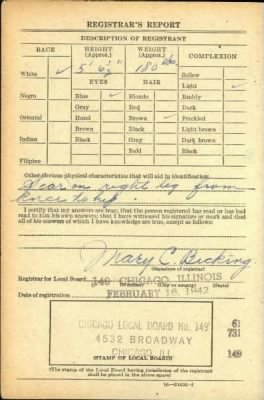 REGISTRAR'S REPORT
DESCRIPTION OF REGISTRANT
RACE HEIGHT (Approx.) WEIGHT (Approx.) COMPLEXION
5' 6½" 180 lbs.
White ✓ Sallow
EYES HAIR Light ✓
Negro Blue ✓ Blonde Ruddy
Gray Red Dark
Oriental Hazel Brown ✓ Freckled
Brown Black Light brown
Indian Black Gray Dark brown
Bald Black
Filipino
Other obvious physical characteristics that will aid in identification
Scar on right leg from
knee to hip.
I certify that my answers are true; that the person registered has read or has had
read to him his own answers; that I have witnessed his signature or mark and that
all of his answers of which I have knowledge are true, except as follows:
Mary C. Bicking
(Signature of registrar)
Registrar for Local Board 149 CHICAGO, ILLINOIS
(Number) (City or county) (State)
Date of registration FEBRUARY 16, 1942
CHICAGO LOCAL BOARD No. 149
4532 BROADWAY
CHICAGO ILL
61
731
149
STAMP OF LOCAL BOARD
(The stamp of the Local Board having jurisdiction of the registrant
shall be placed in the above space)